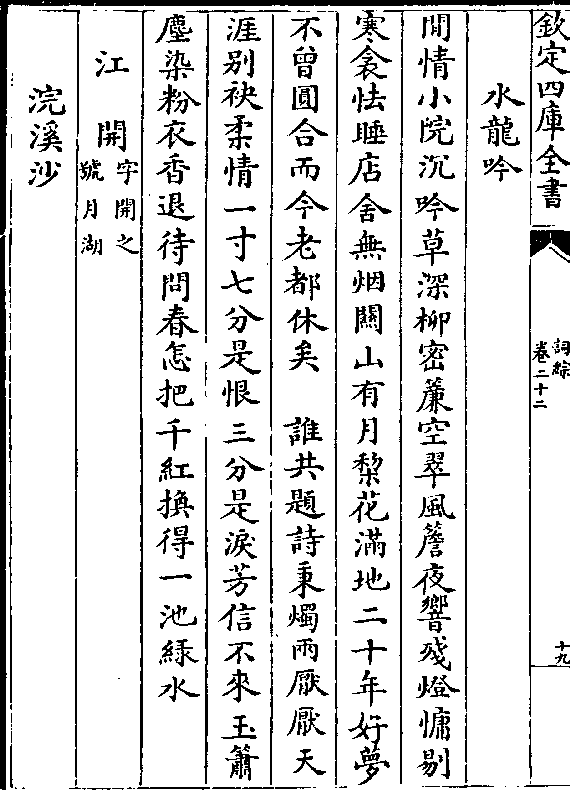 欽定四庫全書
詞綜
卷二十二
十九
水龍吟
閒情小院沉吟草深柳密簾空翠風簷夜響殘燈慵剔
寒衾怯睡店舍無烟關山有月棃花滿地二十年好夢
不曾圓合而今老都休矣　誰共題詩秉燭兩厭厭天
涯别袂柔情一寸七分是恨三分是淚芳信不來玉簫
塵染粉衣香退待問春怎把千紅換得一池綠水
江開字開之
號月湖
浣溪沙